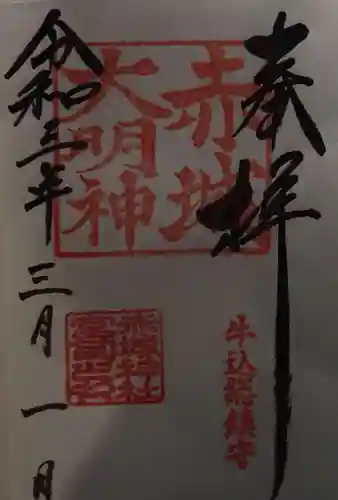 奉拝
赤城
大明神
牛込總鎮守
令和三年三月一日